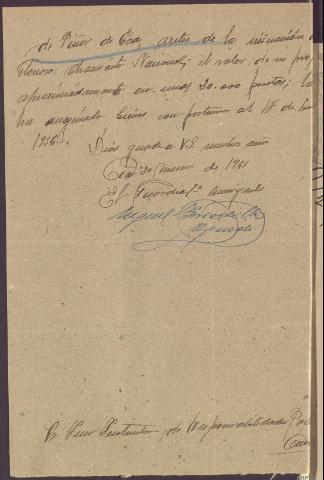 de Piñor de Cea, antes de la iniciación
Glorioso Alzamiento Nacional; el valor de su pro
aproximadamente en unas 20.000 pesetas;
ha adquirido bienes con posterioridad al 18 de
1936.
Dios guarde a V.S. muchos años
Cea 30 Marzo de 1941
El Guardia 2º encargado
Miguel
Sr. Juez Instructor de Responsabilidades Po